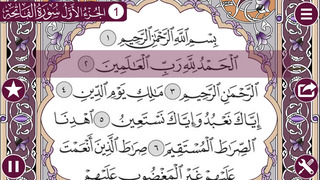 1 الجزء الأول سورة الفاتحة
بِسْمِ ٱللَّهِ ٱلرَّحْمَٰنِ ٱلرَّحِيمِ ١
ٱلْحَمْدُ لِلَّهِ رَبِّ ٱلْعَٰلَمِينَ ٢
ٱلرَّحْمَٰنِ ٱلرَّحِيمِ ٣ مَٰلِكِ يَوْمِ ٱلدِّينِ ٤
إِيَّاكَ نَعْبُدُ وَإِيَّاكَ نَسْتَعِينُ ٥ ٱهْدِنَا
ٱلصِّرَٰطَ ٱلْمُسْتَقِيمَ ٦ صِرَٰطَ ٱلَّذِينَ أَنْعَمْتَ
عَلَيْهِمْ غَيْرِ ٱلْمَغْضُوبِ عَلَيْهِمْ